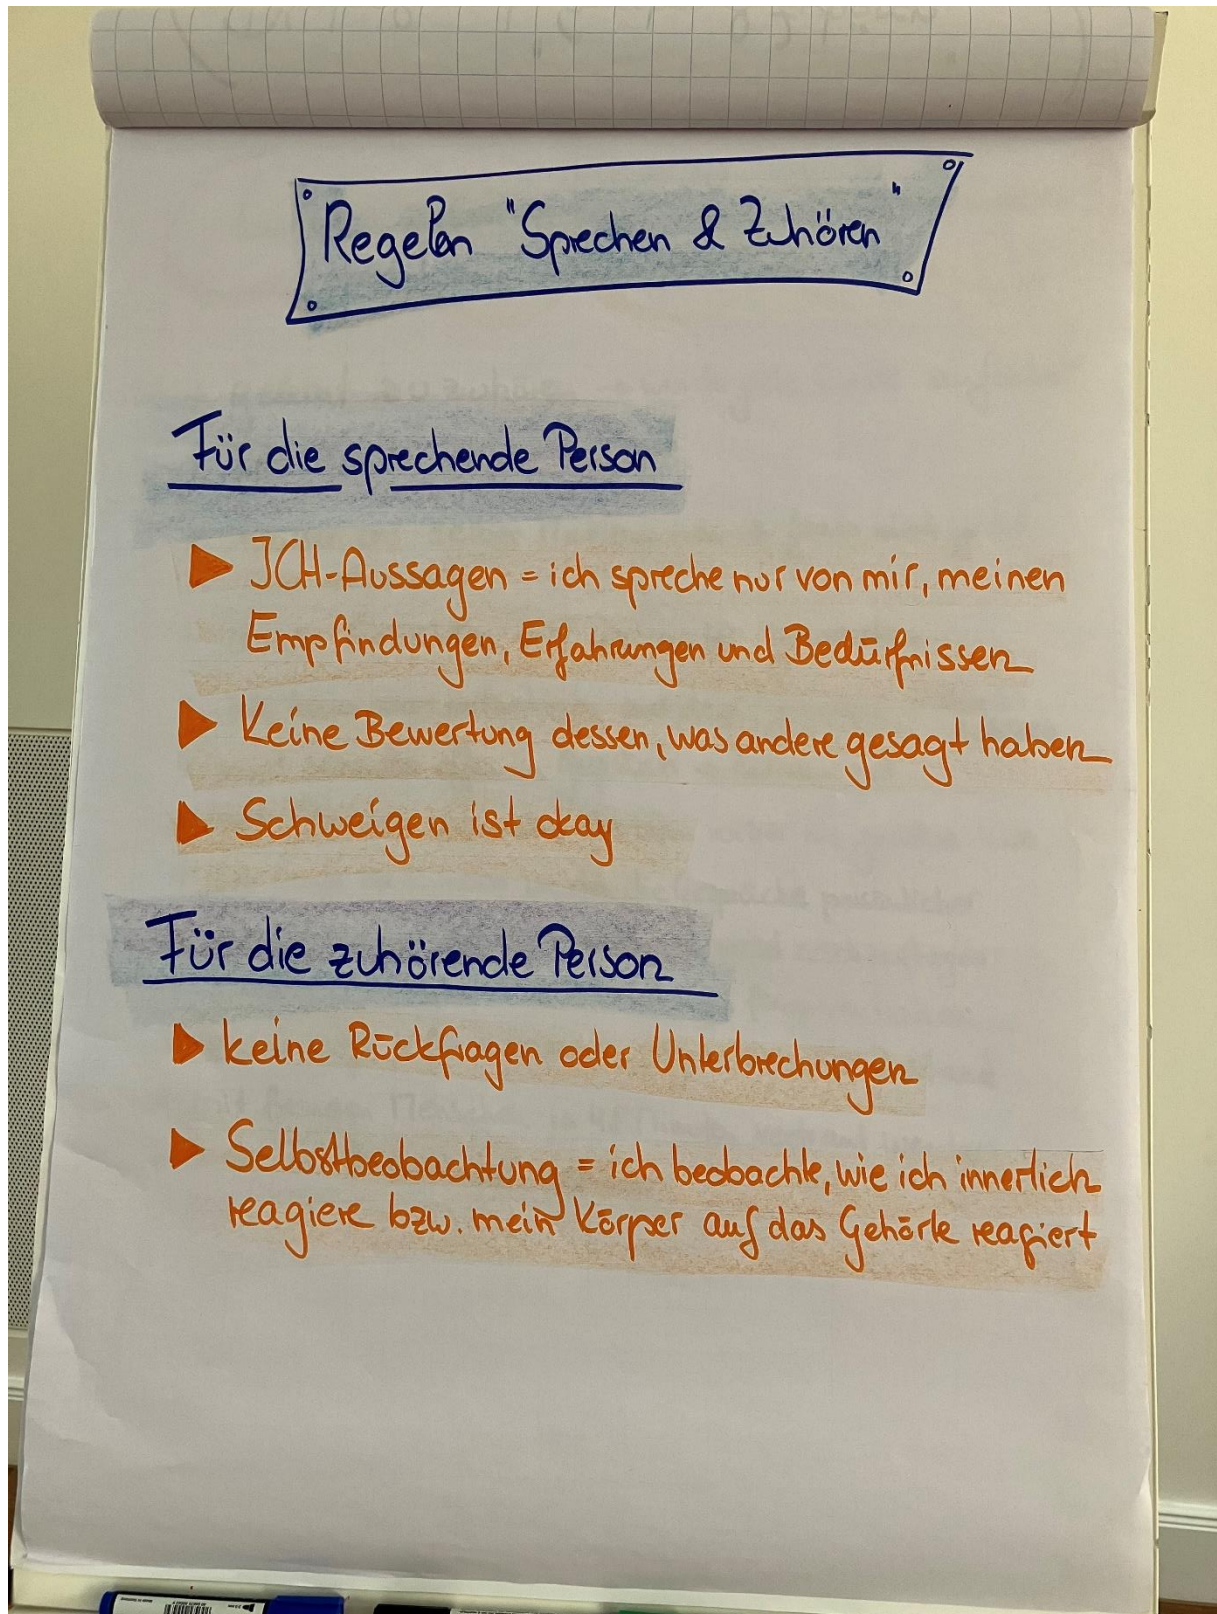 Regeln "Sprechen & Zuhören"
Für die sprechende Person
ICH-Aussagen = ich spreche nur von mir, meinen
Empfindungen, Erfahrungen und Bedürfnissen
Keine Bewertung dessen, was andere gesagt haben
Schweigen ist okay
Für die zuhörende Person
keine Rückfragen oder Unterbrechungen
Selbstbeobachtung = ich beobachte, wie ich innerlich
reagiere bzw. mein Körper auf das Gehörte reagiert